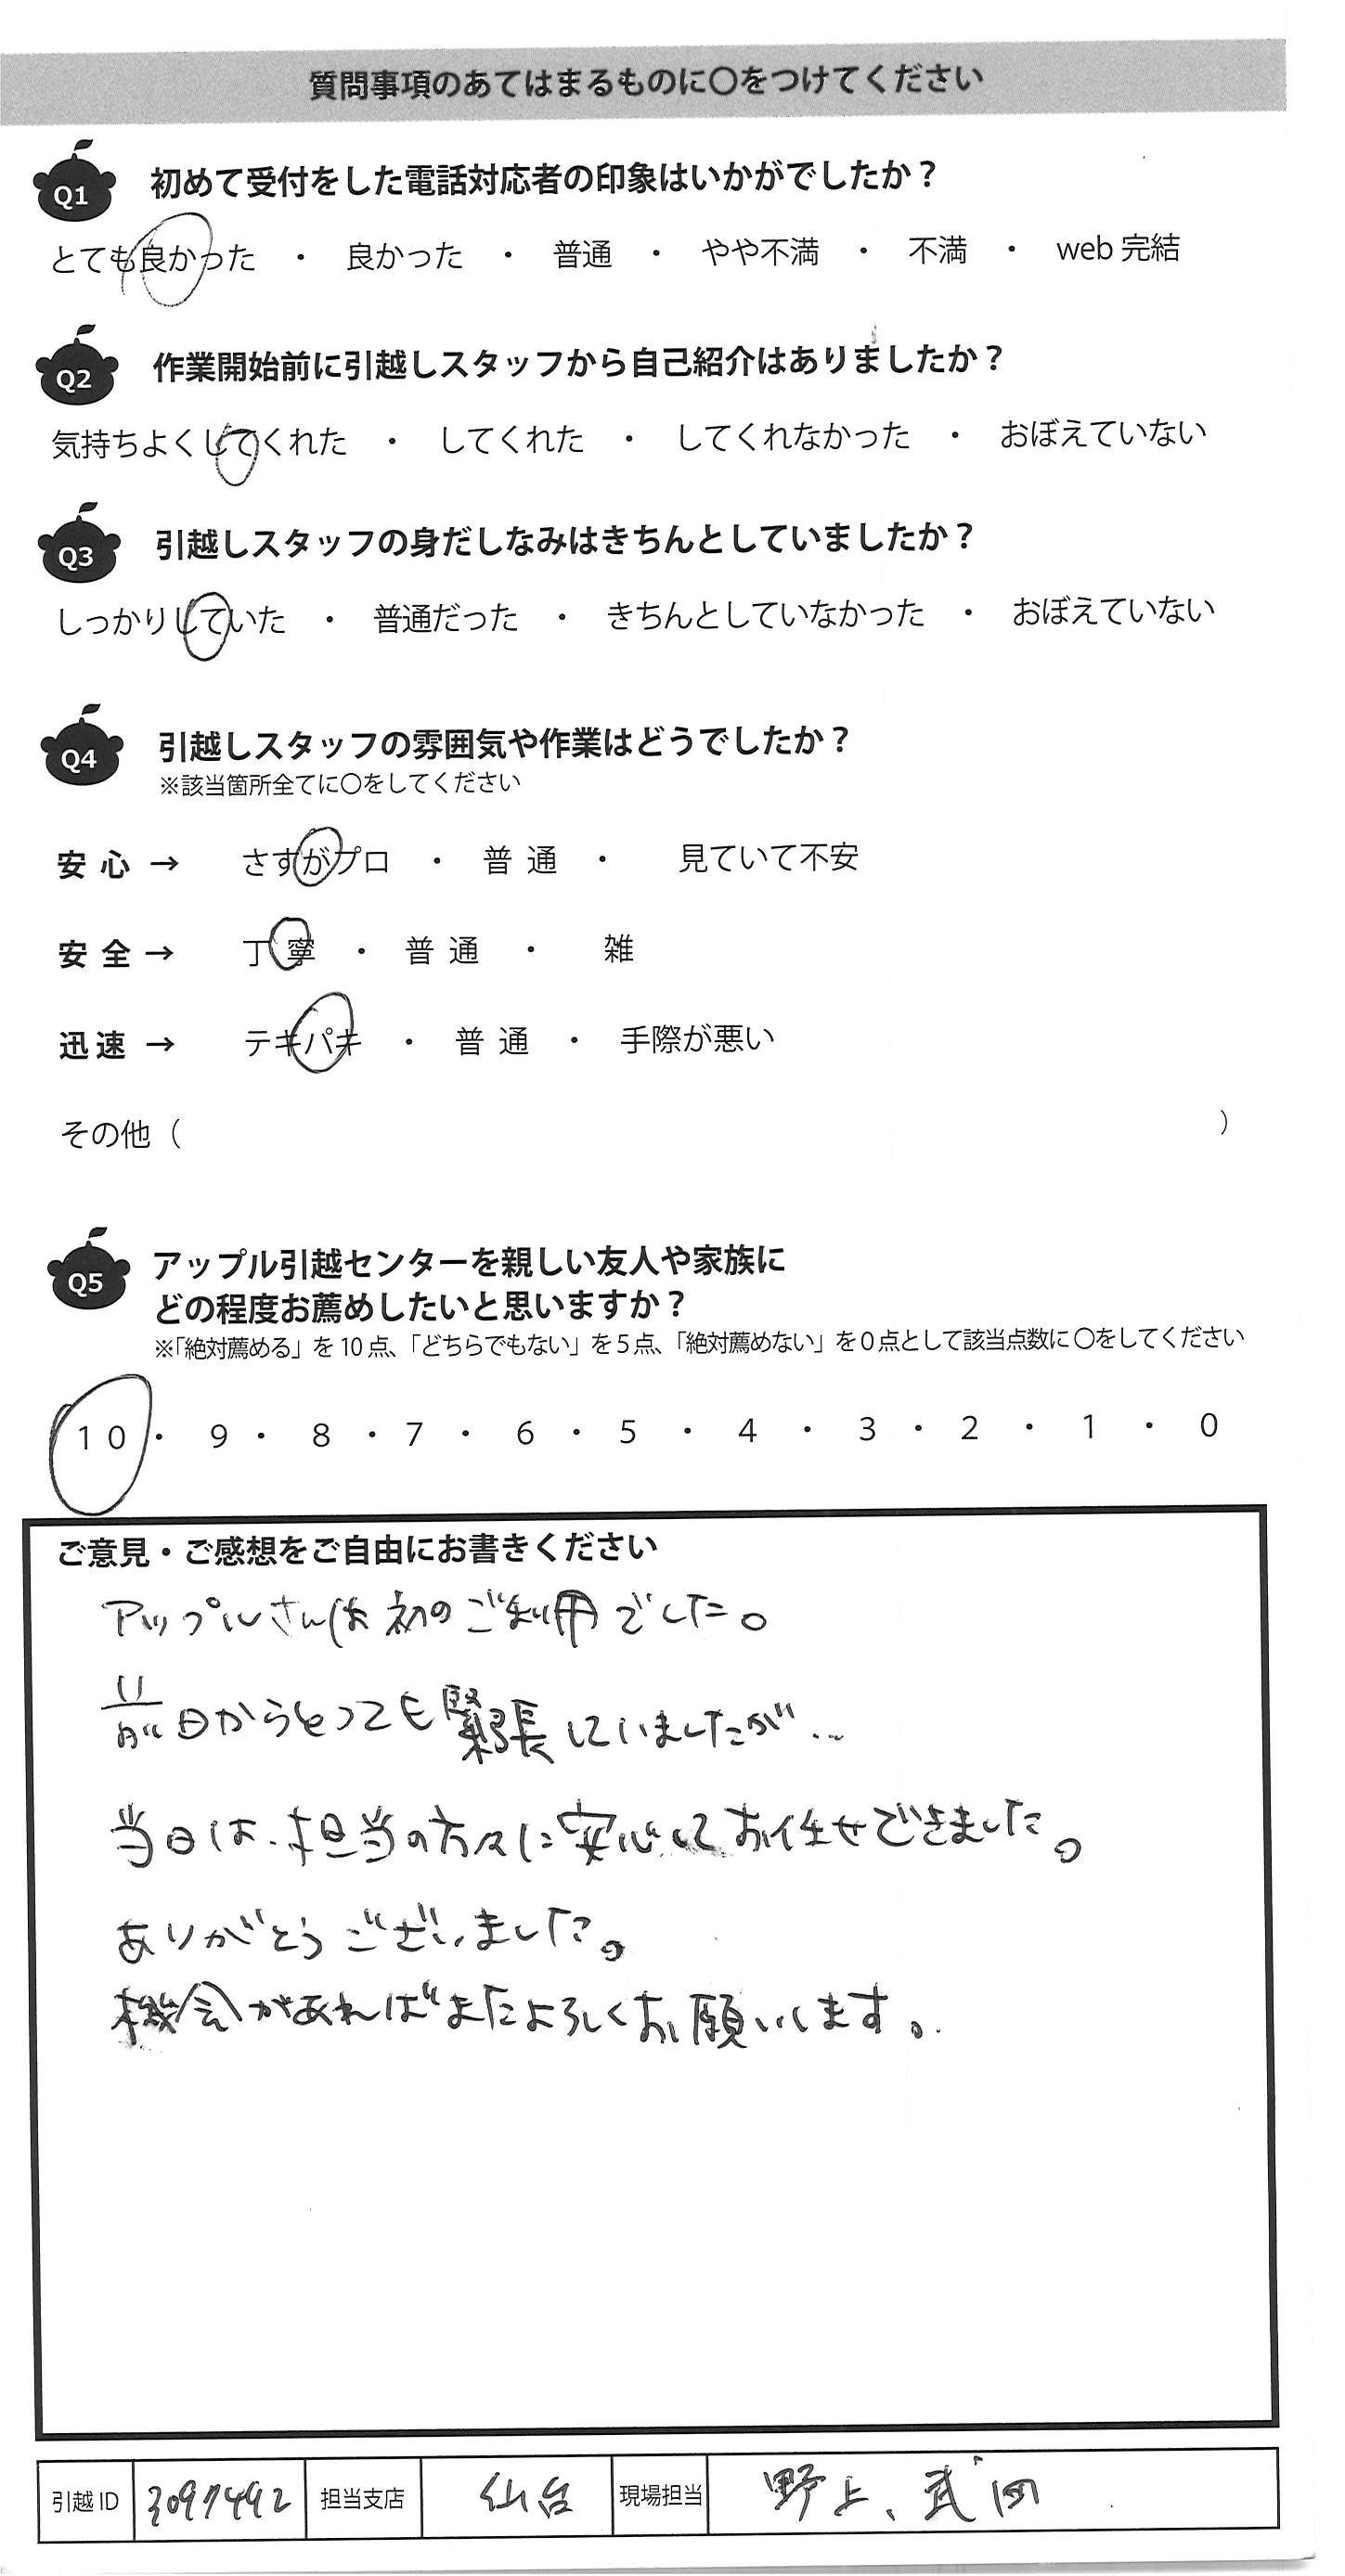 質問事項のあてはまるものに〇をつけてください
Q1 初めて受付をした電話対応者の印象はいかがでしたか？
とても良かった ・ 良かった ・ 普通 ・ やや不満 ・ 不満 ・ web完結
Q2 作業開始前に引越しスタッフから自己紹介はありましたか？
気持ちよくしてくれた ・ してくれた ・ してくれなかった ・ おぼえていない
Q3 引越しスタッフの身だしなみはきちんとしていましたか？
しっかりしていた ・ 普通だった ・ きちんとしていなかった ・ おぼえていない
Q4 引越しスタッフの雰囲気や作業はどうでしたか？
※該当箇所全てに〇をしてください
安心 → さすがプロ ・ 普通 ・ 見ていて不安
安全 → 丁寧 ・ 普通 ・ 雑
迅速 → テキパキ ・ 普通 ・ 手際が悪い
その他（ ）
Q5 アップル引越センターを親しい友人や家族に
どの程度お薦めしたいと思いますか？
※「絶対薦める」を10点、「どちらでもない」を5点、「絶対薦めない」を0点として該当点数に〇をしてください
10 ・ 9 ・ 8 ・ 7 ・ 6 ・ 5 ・ 4 ・ 3 ・ 2 ・ 1 ・ 0
ご意見・ご感想をご自由にお書きください
アップルさんは初のご利用でした。
前日からとっても緊張していましたが…
当日は、担当の方々に安心してお任せできました。
ありがとうございました。
機会があればまたよろしくお願いします。
引越ID 3097492 担当支店 仙台 現場担当 野上、武田